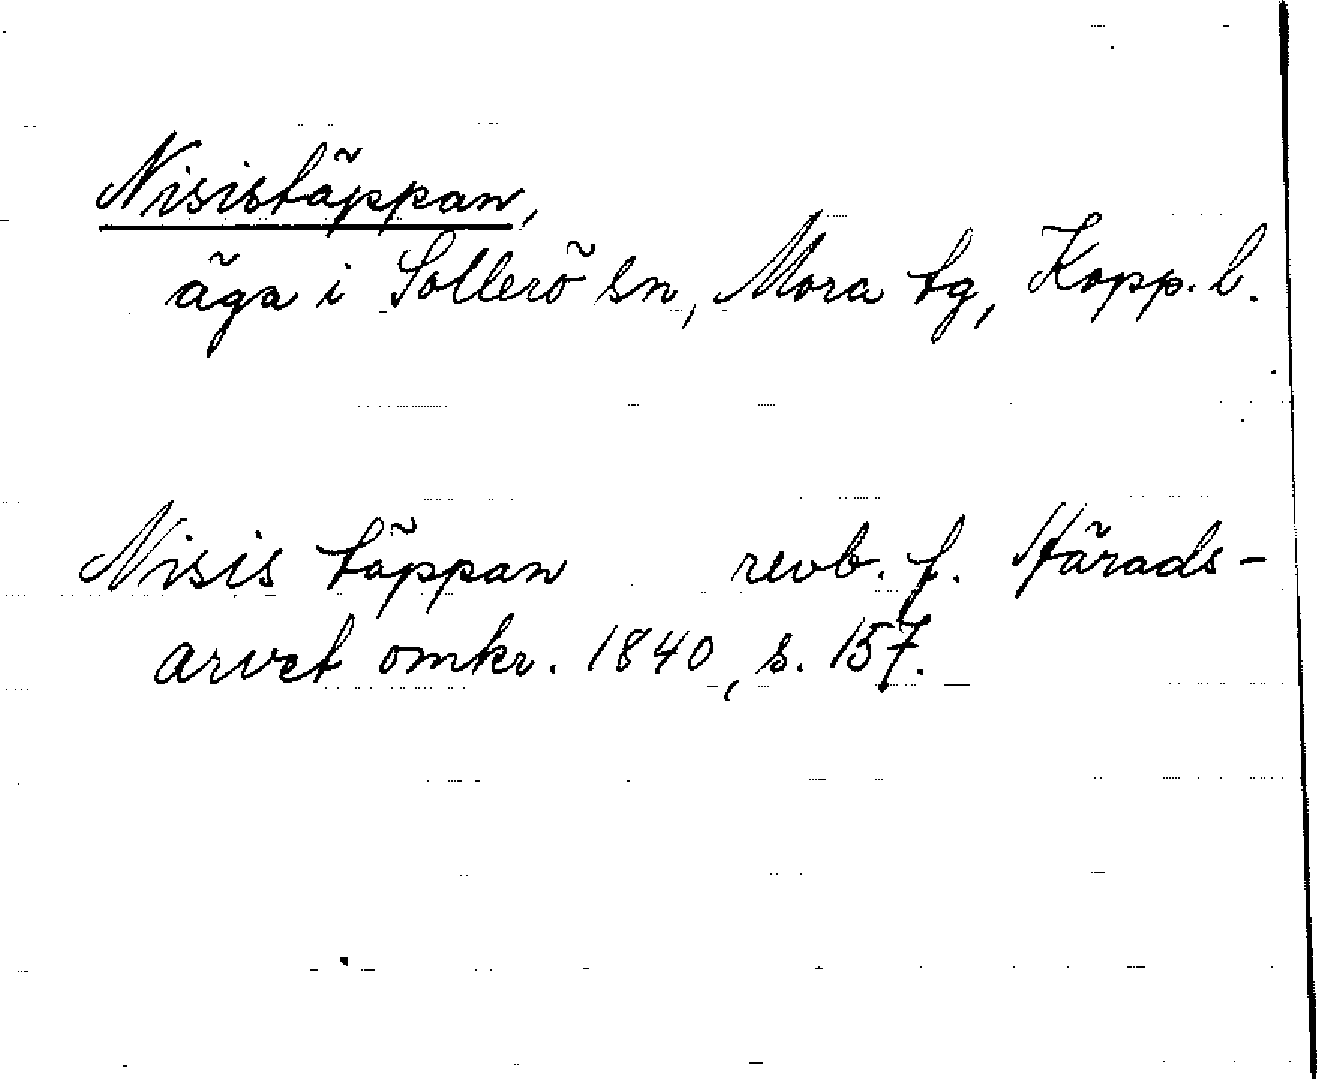 Nisistäppan,
äga i Sollerö sn, Mora tg, Kopp. l.
Nisis täppan revb. f. Härads-
arvet omkr. 1840, s. 157.